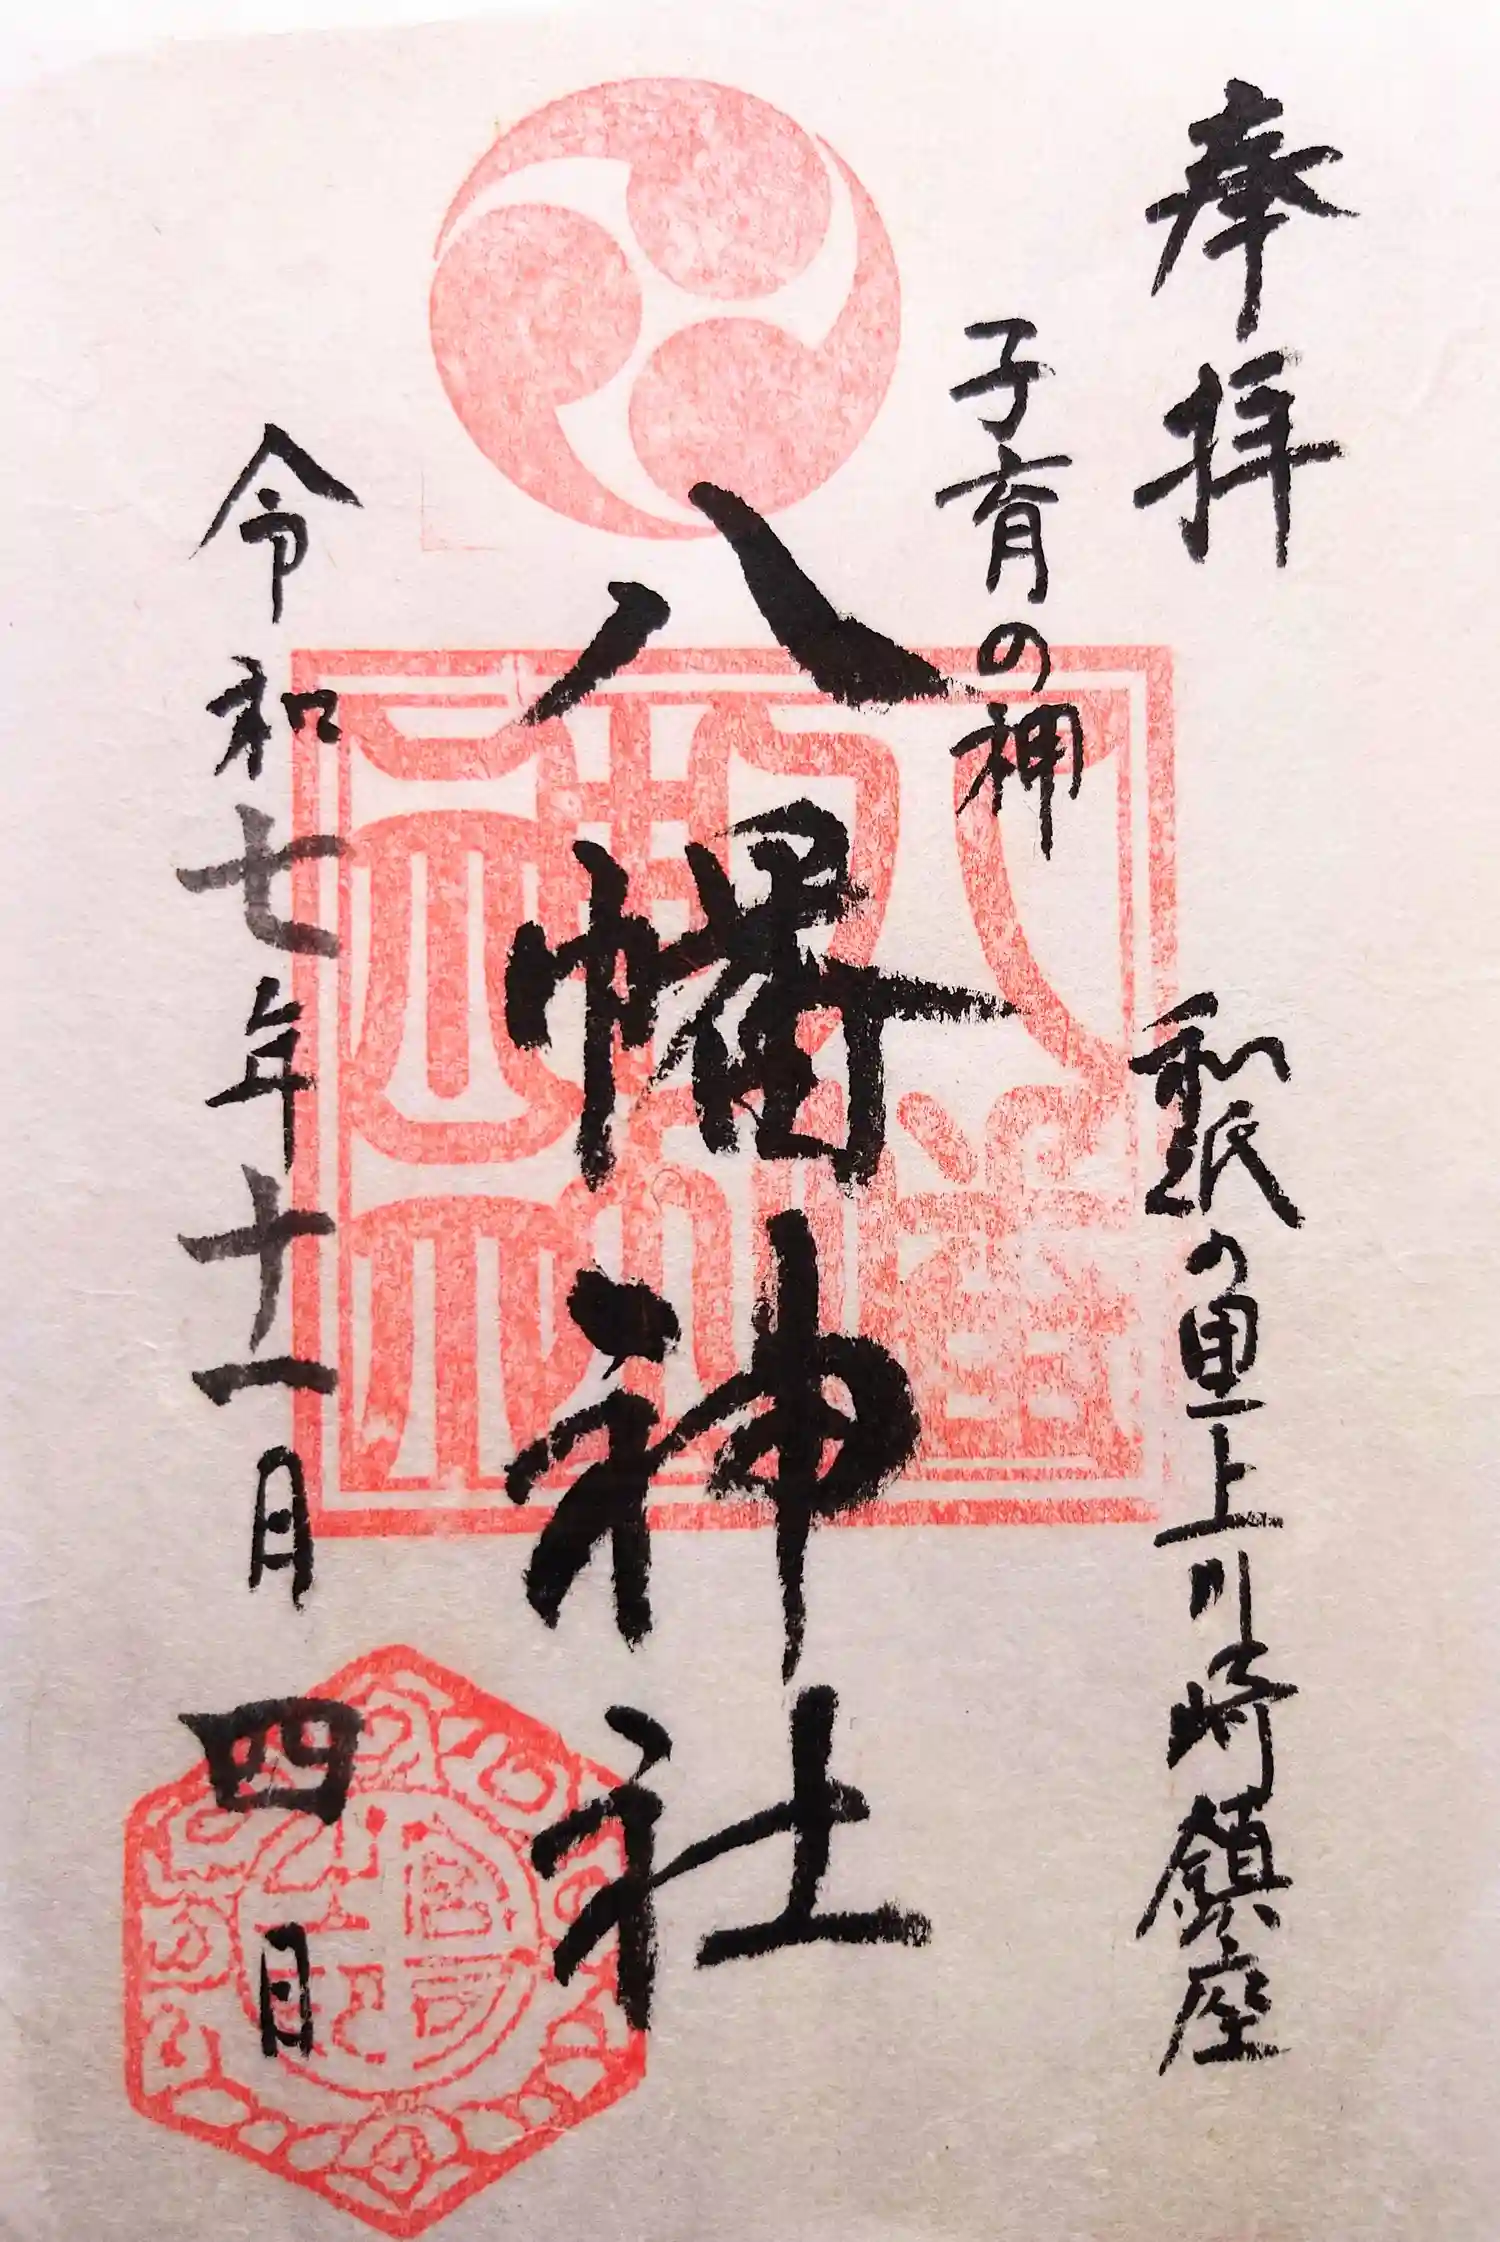 奉拝
和紙の里上川崎鎮座
子育の神
八幡神社
令和七年十一月四日
八幡神社
宮司之印